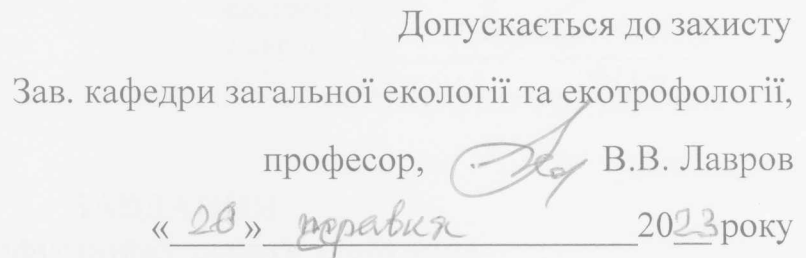 Допускається до захисту
Зав. кафедри загальної екології та екотрофології,
професор, В.В. Лавров
«20» травня 2023 року